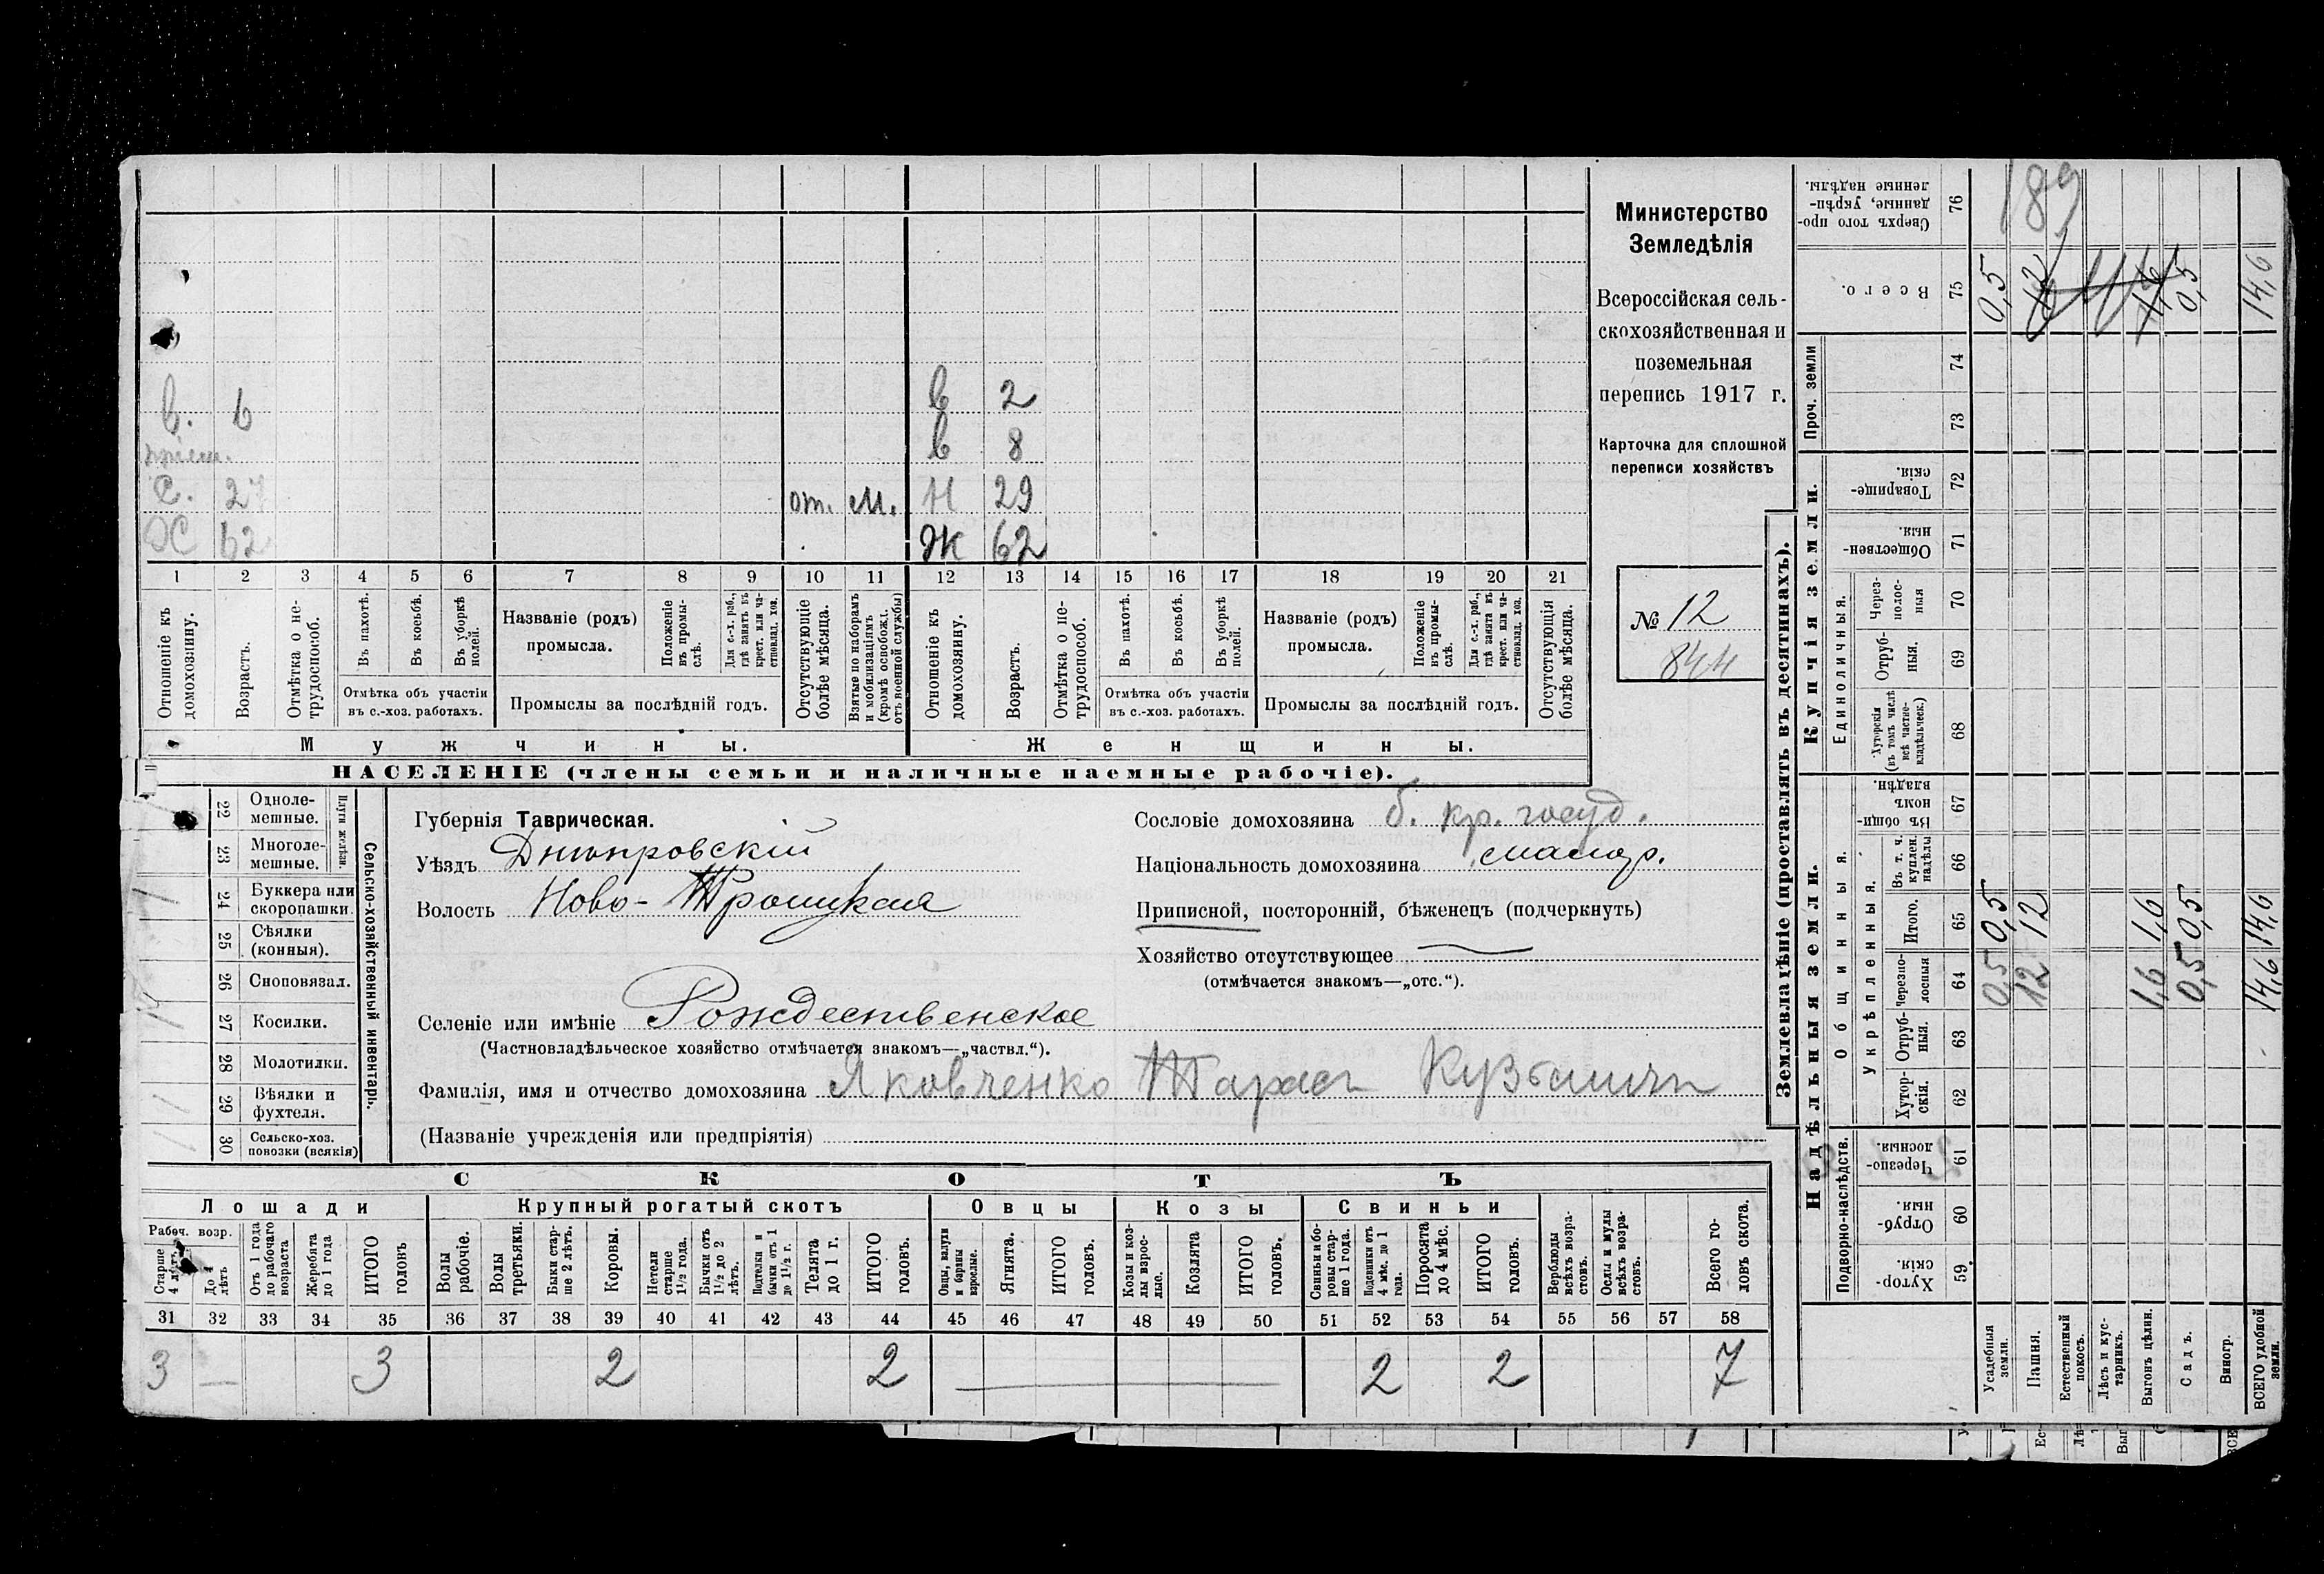 Министерство
Земледѣлія
Всероссійская сель-
скохозяйственная и
поземельная
перепись 1917 г.
Карточка для сплошной
переписи хозяйствъ
№ 12
844
в. 6
пріем.
с. 27 от. м.
Ж 62
в 2
в 8
Н 29
Ж 62
1 2 3 4 5 6 7 8 9 10 11 12 13 14 15 16 17 18 19 20 21
Отношеніе къ домохозяину.
Возрастъ.
Отмѣтка о не-трудоспособ.
Въ пахотѣ.
Въ косьбѣ.
Въ уборкѣ полей.
Отмѣтка объ участіи
въ с.-хоз. работахъ.
Названіе (родъ)
промысла.
Положеніе въ промы-слѣ.
Для с.-х. раб., гдѣ занятъ въ крест. или ча-стновлад. хоз.
Промыслы за послѣдній годъ.
Отсутствующіе болѣе мѣсяца.
Взятые по наборамъ и мобилизаціямъ (кромѣ освобожд. отъ военной службы)
Отношеніе къ домохозяину.
Возрастъ.
Отмѣтка о не-трудоспособ.
Въ пахотѣ.
Въ косьбѣ.
Въ уборкѣ полей.
Отмѣтка объ участіи
въ с.-хоз. работахъ.
Названіе (родъ)
промысла.
Положеніе въ промы-слѣ.
Для с.-х. раб., гдѣ занята въ крест. или ча-стновлад. хоз.
Промыслы за послѣдній годъ.
Отсутствующія болѣе мѣсяца.
Мужчины.
Женщины.
НАСЕЛЕНІЕ (члены семьи и наличные наемные рабочіе).
22 Одноле-мешные.
23 Многоле-мешные.
Плуги желѣзн.
24 Буккера или скоропашки.
25 Сѣялки (конныя).
26 Сноповязал.
27 Косилки.
28 Молотилки.
29 Вѣялки и фухтеля.
30 Сельско-хоз. повозки (всякія)
Сельско-хозяйственный инвентарь.
Губернія Таврическая.
Уѣздъ Днѣпровскій
Волость Ново-Троицкая
Селеніе или имѣніе Рождественское
(Частновладѣльческое хозяйство отмѣчается знакомъ—„частвл.“).
Фамилія, имя и отчество домохозяина Яковченко Тарасъ Кузьмичъ
(Названіе учрежденія или предпріятія)
Сословіе домохозяина б. кр. госуд.
Національность домохозяина малор.
Приписной, посторонній, бѣженецъ (подчеркнуть)
Хозяйство отсутствующее
(отмѣчается знакомъ—„отс.“).
СКОТЪ
Лошади
Рабоч. возр.
Старше 4 лѣтъ
До 4 лѣтъ
Отъ 1 года до рабочаго возраста
Жеребята до 1 года
ИТОГО головъ
Крупный рогатый скотъ
Волы рабочіе.
Волы третьяки.
Быки стар-ше 2 лѣтъ.
Коровы.
Нетели старше 1½ года.
Бычки отъ 1½ до 2 лѣтъ.
Подтелки и бычки отъ 1 до 1½ г.
Телята до 1 г.
ИТОГО головъ.
Овцы
Овцы, валухи и бараны взрослые.
Ягнята.
ИТОГО головъ.
Козы
Козы и коз-лы взрос-лые.
Козлята
ИТОГО головъ.
Свиньи
Свиньи и бо-ровы стар-ше 1 года.
Подсвинки отъ 4 мѣс. до 1 года.
Поросята до 4 мѣс.
ИТОГО головъ.
Верблюды всѣхъ возра-стовъ.
Ослы и мулы всѣхъ возра-стовъ.
Всего го-ловъ скота.
31 32 33 34 35 36 37 38 39 40 41 42 43 44 45 46 47 48 49 50 51 52 53 54 55 56 57 58
3 — 3 2 2 — 2 2 7
Землевладѣніе (проставлять въ десятинахъ).
Надѣльныя земли.
Подворно-наслѣдств.
Хутор-скія. 59
Отруб-ныя. 60
Черезпо-лосныя. 61
Общинныя.
Укрѣпленныя.
Хутор-скія. 62
Отруб-ныя. 63
Черезпо-лосныя 64
Итого. 65
Въ т. ч. куплен. надѣлы 66
Въ общин-номъ владѣн. 67
Купчія земли.
Единоличныя.
Хуторскія (въ томъ числѣ всѣ частно-владѣльческ.) 68
Отруб-ныя. 69
Через-полос-ныя 70
Обществен-ныя. 71
Товарище-скія. 72
Проч. земли
73
74
Всего. 75
Сверхъ того про-данные, укрѣп-ленные надѣлы. 76
Усадебныя земли. 0,5 0,5 0,5
Пашня. 12 12
Естественный покосъ.
Лѣсъ и кус-тарникъ.
Выгонъ цѣлин. 1,6 1,6
Садъ. 0,5 0,5 0,5
Виногр.
ВСЕГО удобной земли. 14,6 14,6 14,6
189